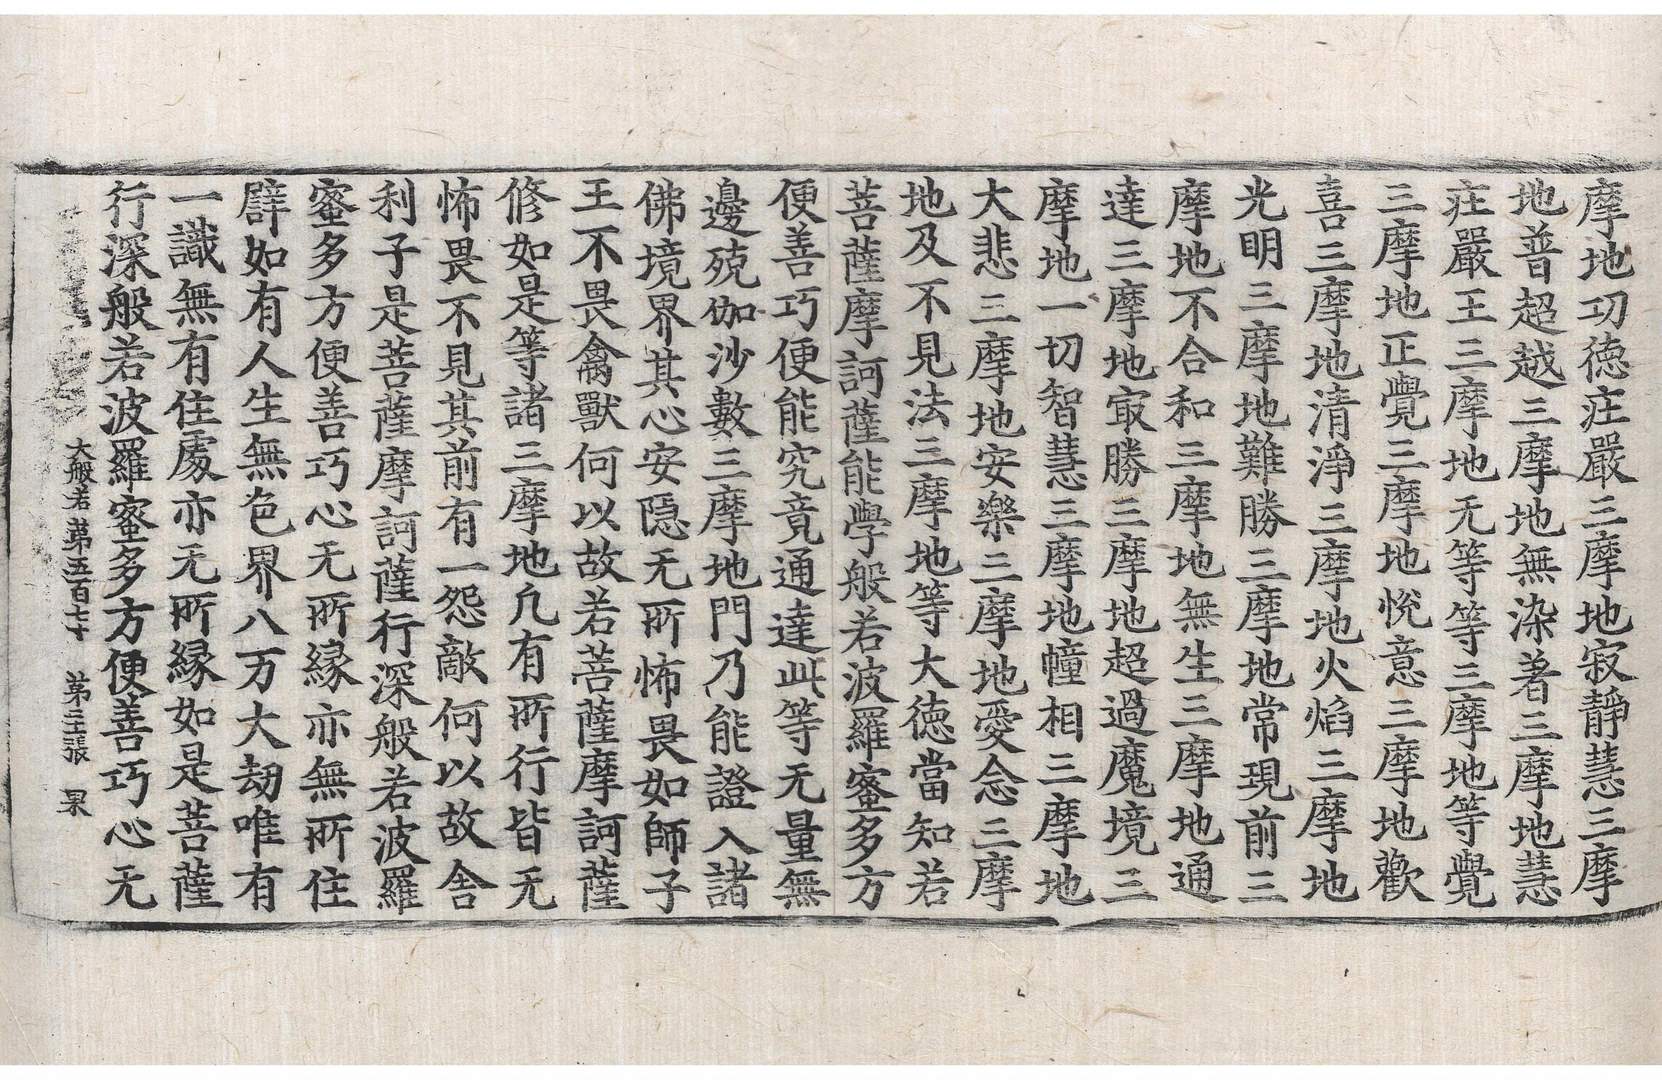 摩地功徳莊嚴三摩地寂靜慧三摩
地普超越三摩地無染著三摩地慧
莊嚴王三摩地无等等三摩地等覺
三摩地正覺三摩地恱意三摩地歡
喜三摩地清淨三摩地火焰三摩地
光明三摩地難勝三摩地常現前三
摩地不合和三摩地無生三摩地通
達三摩地㝡勝三摩地超過魔境三
摩地一切智慧三摩地幢相三摩地
大悲三摩地安樂三摩地愛念三摩
地及不見法三摩地等大徳當知若
菩薩摩訶薩能學般若波羅蜜多方
便善巧便能究竟通達此等无量無
邊殑伽沙數三摩地門乃能證入諸
佛境界其心安隠无所怖畏如師子
王不畏禽獸何以故若菩薩摩訶薩
修如是等諸三摩地凢有所行皆无
怖畏不見其前有一怨敵何以故舍
利子是菩薩摩訶薩行深般若波羅
蜜多方便善巧心无所縁亦無所住
譬如有人生無色界八万大劫唯有
一識無有住處亦无所縁如是菩薩
行深般若波羅蜜多方便善巧心无
大般若第五百七十 第三張 杲